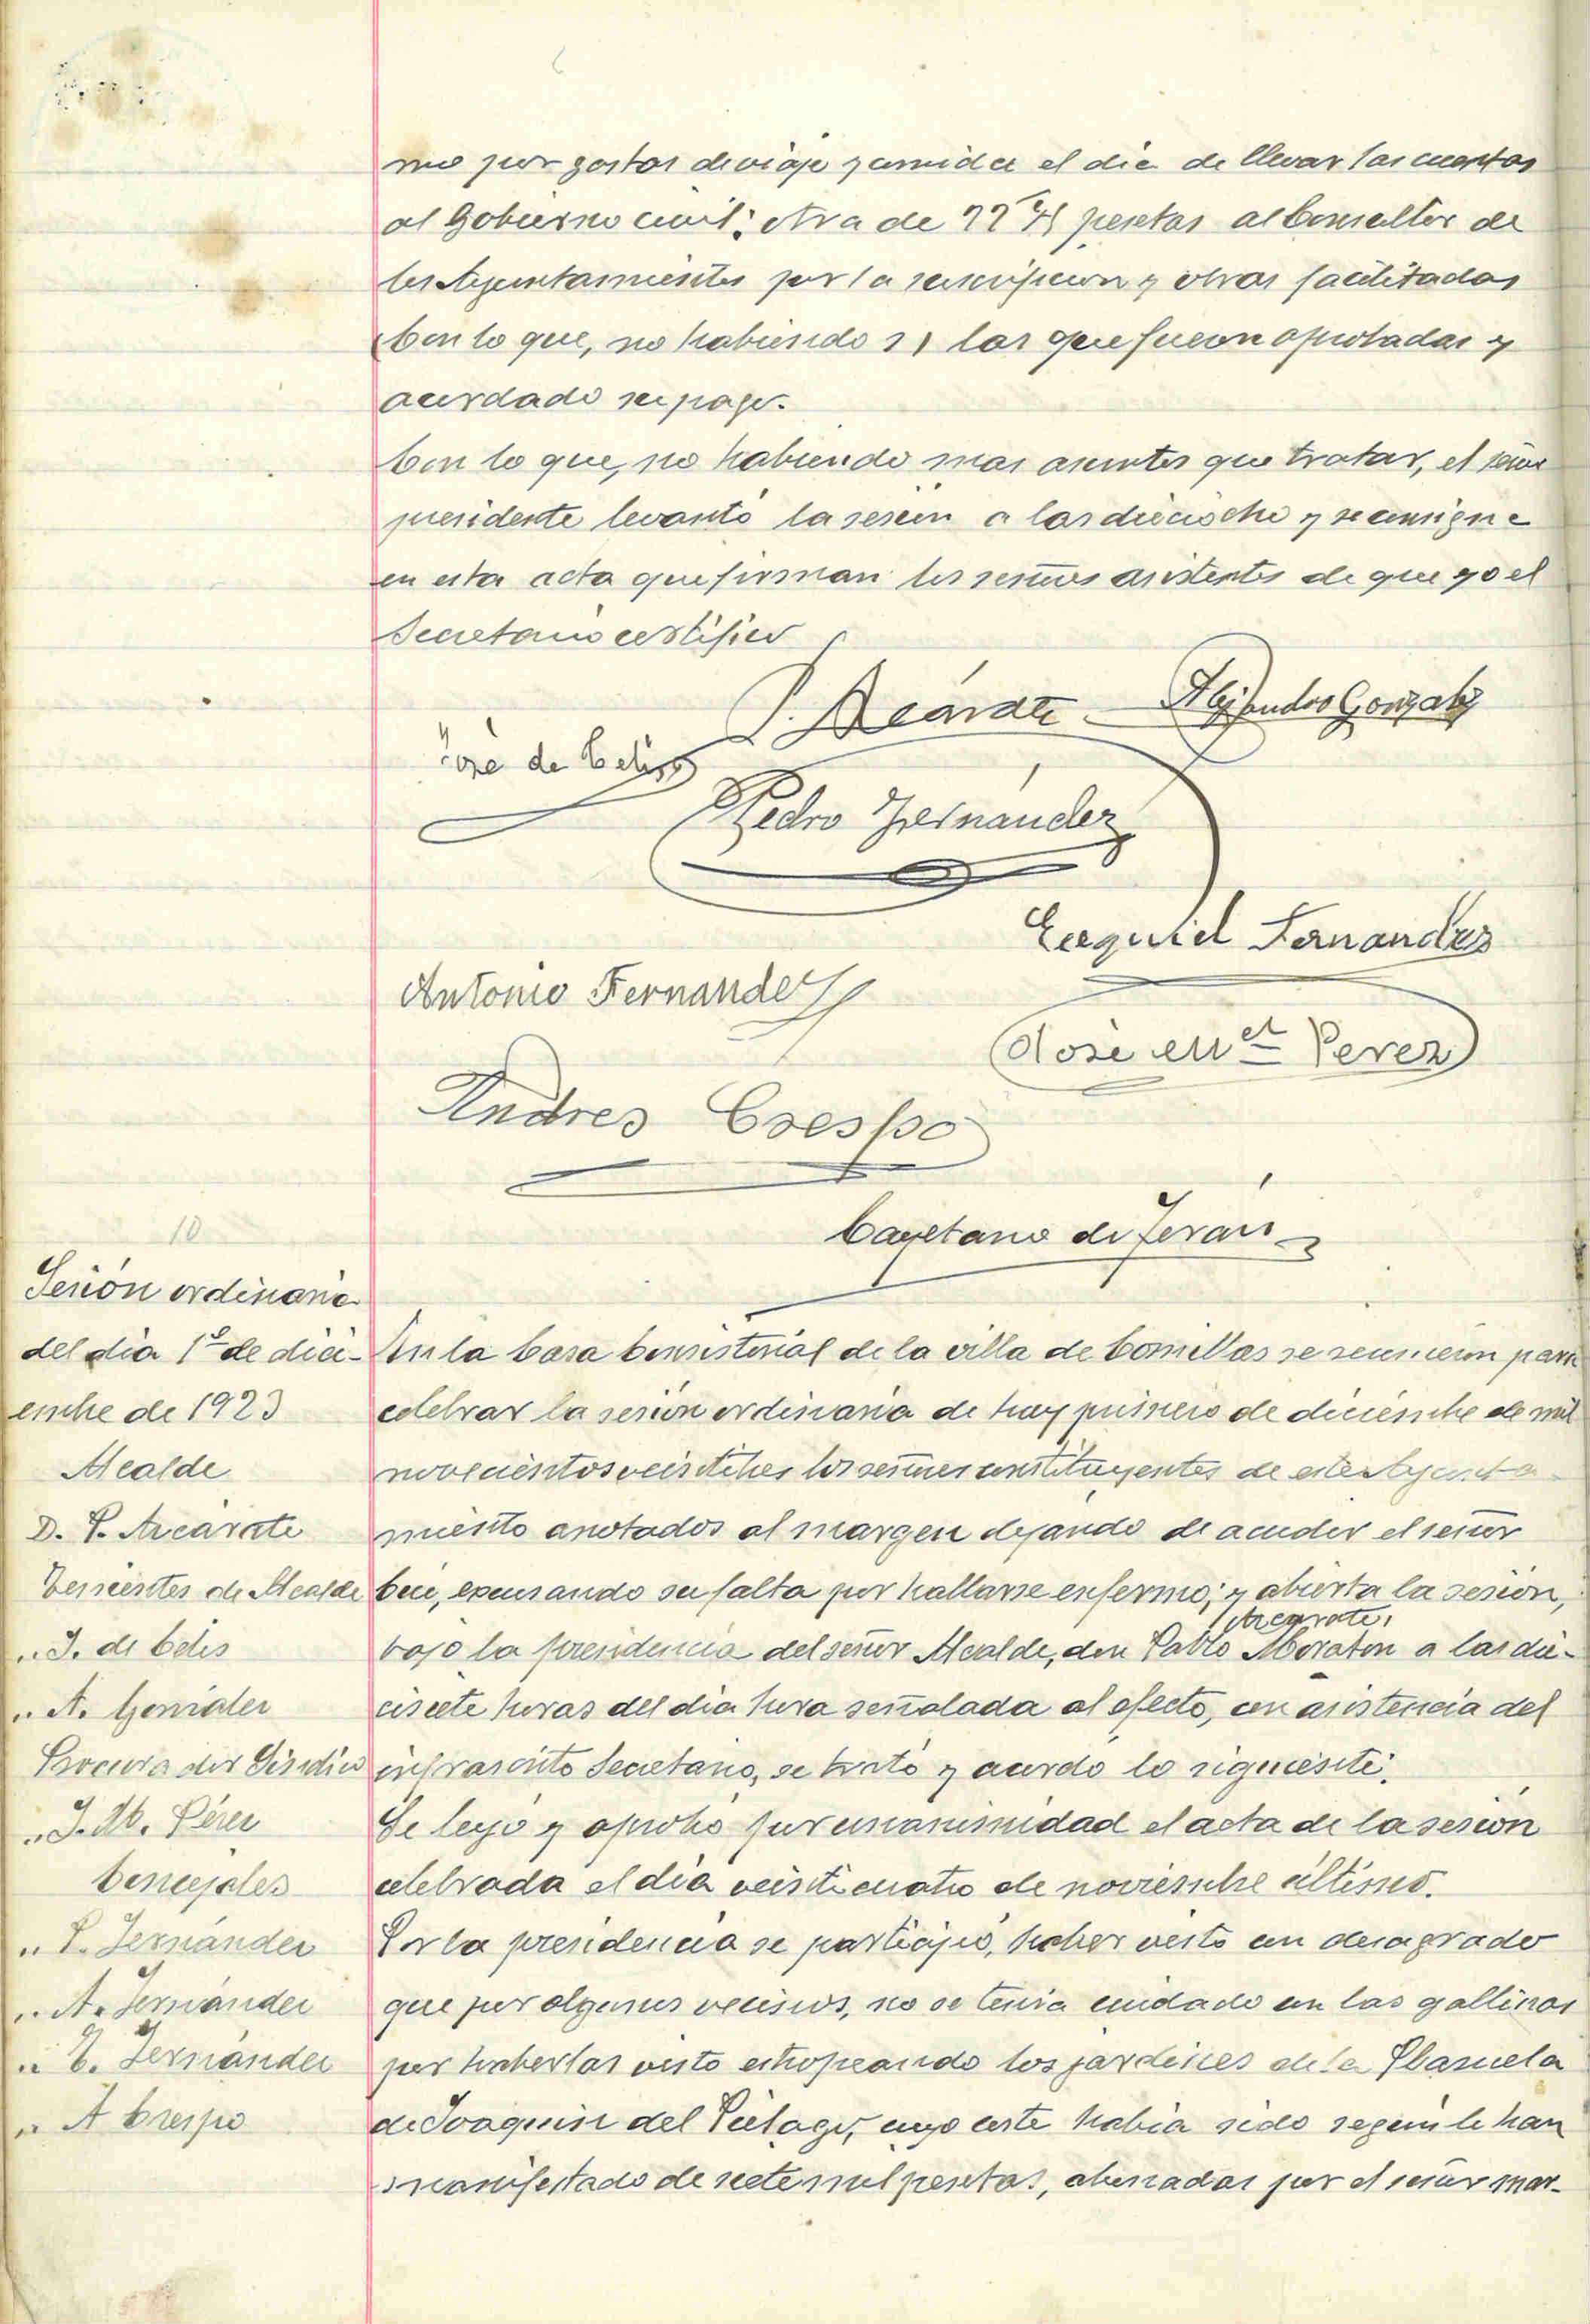 mo por gastos de viaje y comida el dia de llevar las cuentas
al Gobierno civil; otra de pesetas al Consultor de
los Ayuntamientos por la suscripcion y obras facilitadas
Con lo que, no habiendo las que fueron aprobadas y
acordado su pago.
Con lo que, no habiendo mas asuntos que tratar, el señor
presidente levantó la sesion a las dieciocho y se consigna
en esta acta que firman los señores asistentes de que yo el
Secretario certifico
P. Azcárate Alejandro Gonzalez
José de Celis
Pedro Fernández
Ezequiel Fernandez
Antonio Fernandez
José Mel Perez
Andres Crespo
Cayetano de Terán
10
Sesión ordinaria
del dia 1º de dici-
embre de 1923
Alcalde
D. P. Azcárate
Tenientes de Alcalde
" J. de Celis
" A. González
Procurador Síndico
" J. M. Pérez
Concejales
" P. Fernández
" A. Fernández
" E. Fernández
" A Crespo
En la Casa Consistorial de la villa de Comillas se reunieron para
celebrar la sesión ordinaria de hoy primero de diciembre de mil
novecientos veintitres los señores constituyentes de este Ayunta-
miento anotados al margen dejando de acudir el señor
excusando su falta por hallarse enfermo; y abierta la sesión,
Azcarate,
bajo la presidencia del señor Alcalde, don Pablo Moraton a las die-
cisiete horas del dia hora señalada al efecto, con asistencia del
infrascrito Secretario, se trató y acordó lo siguiente:
Se leyó y aprobó por unanimidad el acta de la sesión
celebrada el día veinticuatro de noviembre último.
Por la presidencia se participó, haber visto con desagrado
que por algunos vecinos, no se tenia cuidado con las gallinas
por haberlas visto estropeando los jardines de la Plazuela
de Joaquin del Piélago, cuyo coste habia sido según le han
manifestado de siete mil pesetas, abonadas por el señor mar-